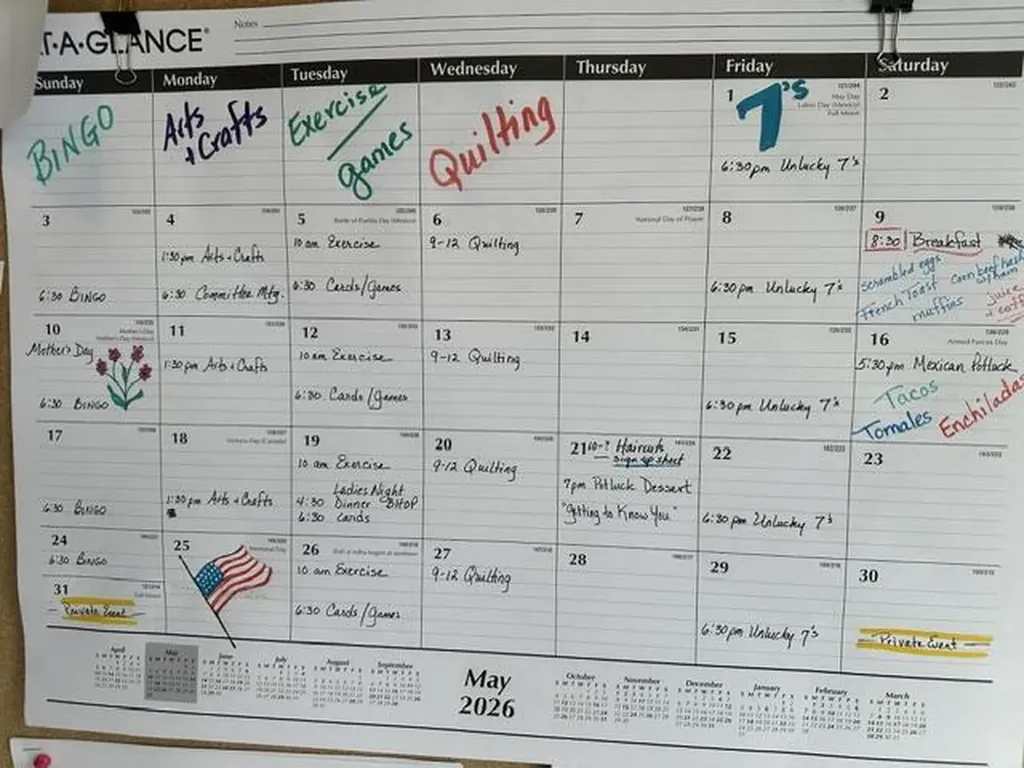 T-A-GLANCE®
Notes
Sunday Monday Tuesday Wednesday Thursday Friday Saturday
BINGO
Arts + Crafts
Exercise
games
Quilting
1
May Day
Labor Day (Mexico)
Full Moon
7's
6:30pm Unlucky 7's
2
3
6:30 BINGO
4
1:30pm Arts + Crafts
6:30 Committee Mtg.
5
Battle of Puebla Day (Mexico)
10 am Exercise
6:30 Cards/Games
6
9-12 Quilting
7
National Day of Prayer
8
6:30pm Unlucky 7's
9
8:30 Breakfast
scrambled eggs
corn beef hash
French Toast
muffins
juice
+ coff
10
Mother's Day
Mother's Day (Mexico)
Mother's Day
6:30 BINGO
11
1:30pm Arts + Crafts
12
10 am Exercise
6:30 Cards/Games
13
9-12 Quilting
14
15
6:30pm Unlucky 7's
16
Armed Forces Day
5:30pm Mexican Potluck
Tacos
Tomales
Enchiladas
17
6:30 BINGO
18
Victoria Day (Canada)
1:30pm Arts + Crafts
19
10 am Exercise
Ladies Night
4:30 Dinner BHOP
6:30 Cards
20
9-12 Quilting
21
10-? Haircuts
sign up sheet
7pm Potluck Dessert
"Getting to Know You"
22
6:30pm Unlucky 7's
23
24
6:30 BINGO
25
Memorial Day
26
10 am Exercise
6:30 Cards/Games
27
9-12 Quilting
28
29
6:30pm Unlucky 7's
30
Private Event
31
Full Moon
Private Event
April May June July August September
May
2026
October November December January February March